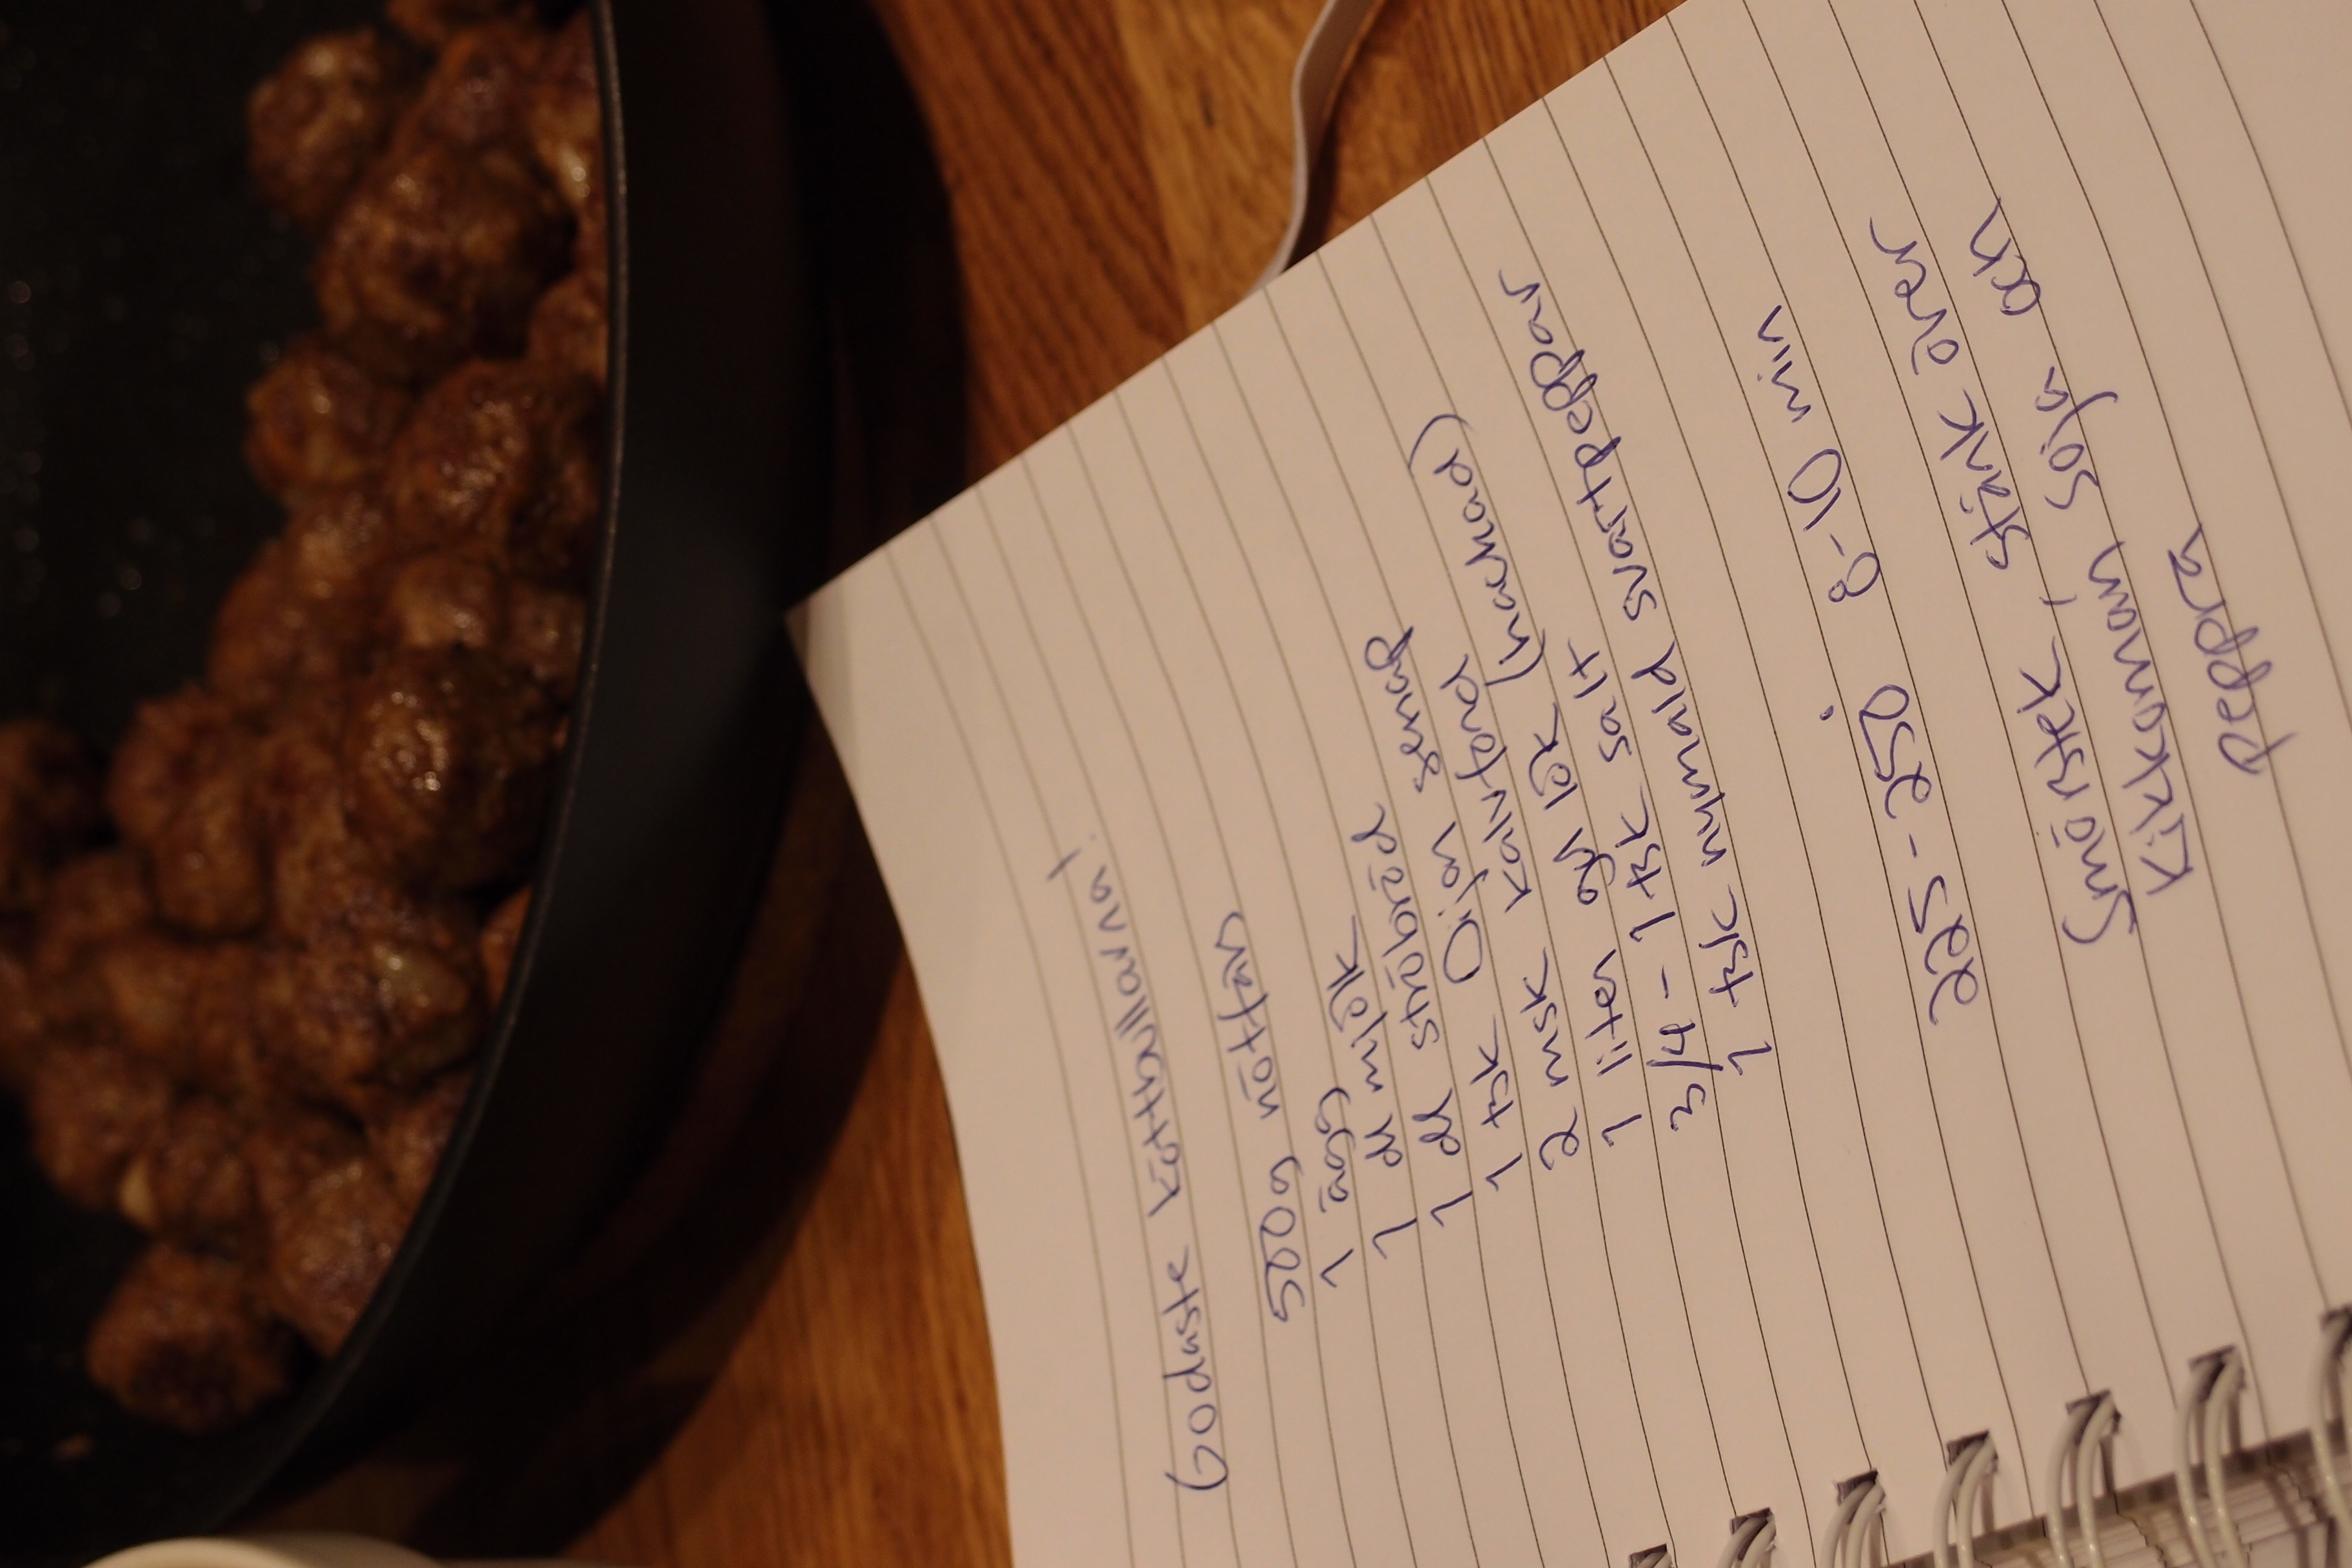 Godaste köttbullarna!
500g nötfärs
1 ägg
1 dl mjölk
1 dl ströbröd
1 tsk Dijon senap
2 msk kalvfond
1 liten gul lök (hackad)
3/4 - 1 tsk salt
1 tsk nymald svartpeppar
225-250° 8-10 min
Smörstek, stänk över
Kikkoman soja och
peppra